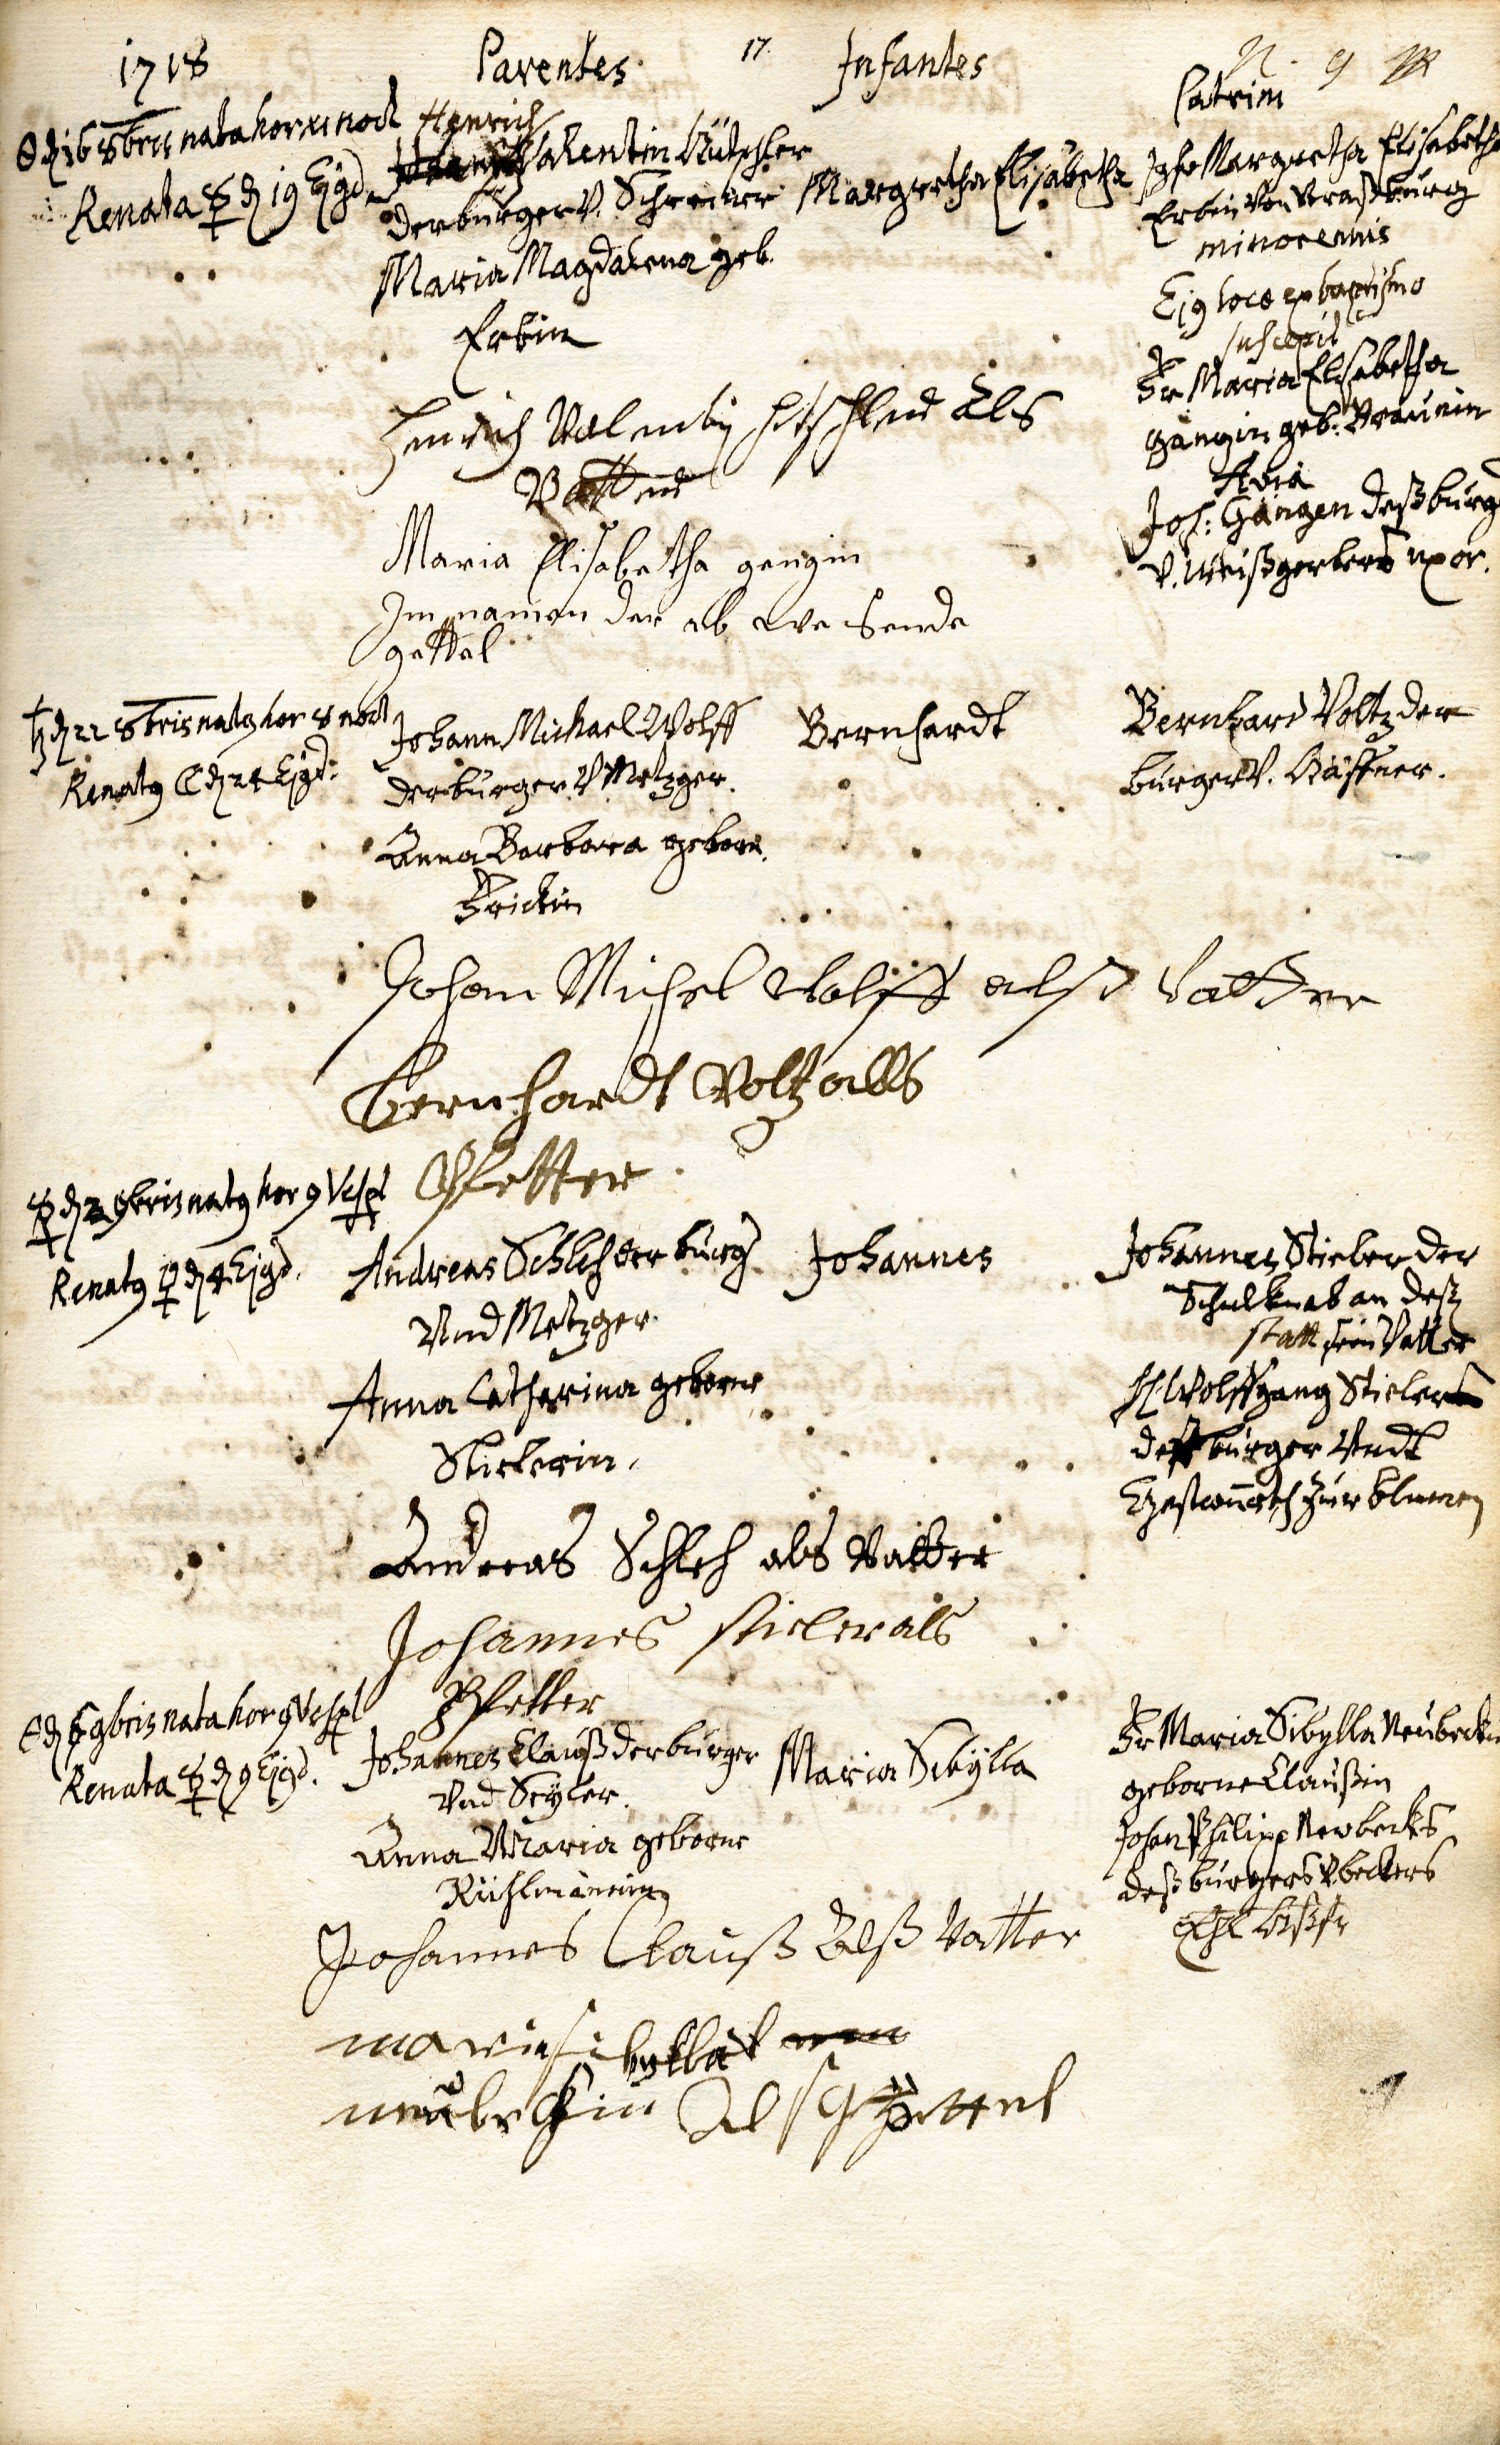 1718
Parentes
17
Infantes
Patrini
☉ d 16 8bris nata hor xi noct
Renata ☿ d 19 Ejqd.
Henrich
Valentin Hütschler
der burger V. Schreiner
Maria Magdalena geb.
Erbin
Margaretha Elisabetha
Jgfr Margaretha Elisabetha
Erbin Von Straßburg
minorennis
Ej9 loco ex baptismo
suscepit
Fr Maria Elisabetha
Gangin geb: Braunin
Avia
Joh: Gangen deß burg
V. Weißgerbers uxor.
Henrich Valentin hitschler Als
Vatter
Maria Elisabetha gengin
Im namen der ab we sende
gettel
♄ d 22 8bris nat9 hor 8 noct
Renat9 ☾ d 24 Ejqd:
Johann Michael Wolff
der burger V Metzger.
Anna Barbara geborn.
Frickin
Bernhardt
Bernhard Voltz der
burger V. Häffner.
Johan Michel Wolff alß Vatter
Bernhardt Voltz alls
Pfetter.
☿ d 2 9bris nat9 hor 9 Vesp
Renat9 ♀ d 4 Ejqd.
Andreas Schleh der burg
Vnd Metzger.
Anna Catharina geborne
Stielerin.
Johannes
Johannes Stieler der
Schulknab an deß
statt sein Vatter
H Wolffgang Stieler
deß burger Vndt
Gastwürth zur blumen
Andreas Schleh als Vatter
Johannes stieler als
Pfetter
☾ d 9bris nata hor 9 Vesp
Renata ☿ d 9 Ejqd.
Johannes Clauß der burger
Vnd Seyler.
Anna Maria geborne
Kühlmännin
Maria Sibÿlla
Fr Maria Sibylla Neubeckin
geborne Claußin
Johan Philipp Newbecks
deß burgers V. beckers
Johannes Clauß Alß Vatter
maria sibylla
neubeckin Als gettel